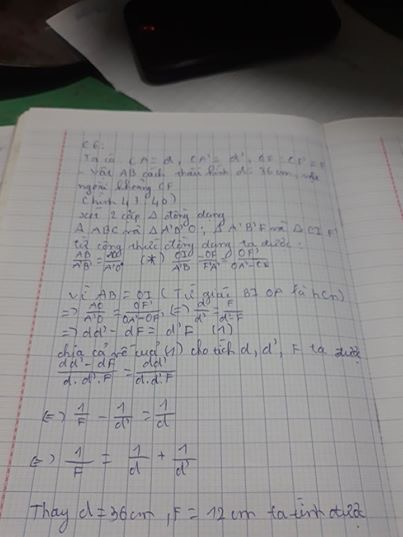 C6.
Ta có: OA = d, OA' = d', OF = OF' = F
- Vật AB cách thấu kính d = 36cm, vật
ngoài khoảng OF
(hình 43.4b)
xét 2 cặp Δ đồng dạng
Δ ABC và Δ A'B'O ; Δ A'B'F' và Δ OIF'
từ công thức đồng dạng ta được:
AB/A'B' = AO/A'O (*) OI/A'B' = OF'/F'A' = OF'/OA'-OF'
vì AB = OI (Tứ giác BIOA là hcn)
=> AO/A'O = OF'/OA'-OF' (=) d/d' = F/d'-F
=> dd' - dF = d'F (1)
chia cả vế của (1) cho tích d, d', F ta được
dd' - dF/d.d'.F = dd'/d.d'.F
(=) 1/F - 1/d' = 1/d
(=) 1/F = 1/d + 1/d'
Thay d = 36cm, F = 12cm ta tính được